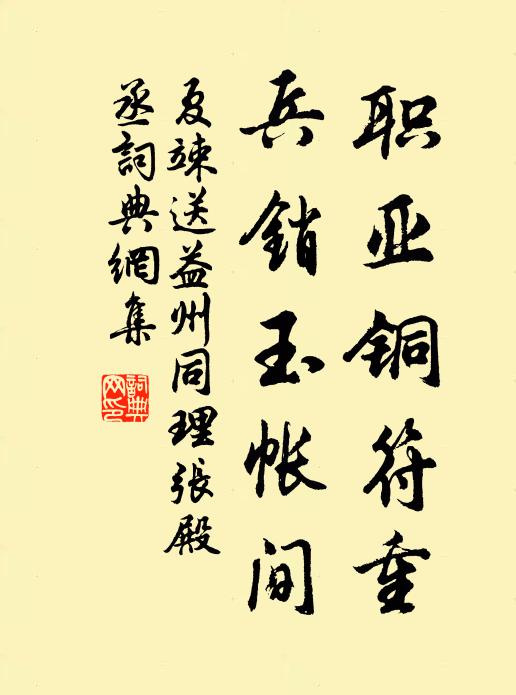 职亚铜符重
兵销玉帐间
夏竦送益州同理張殿
丞詞典網集
詞典
网印